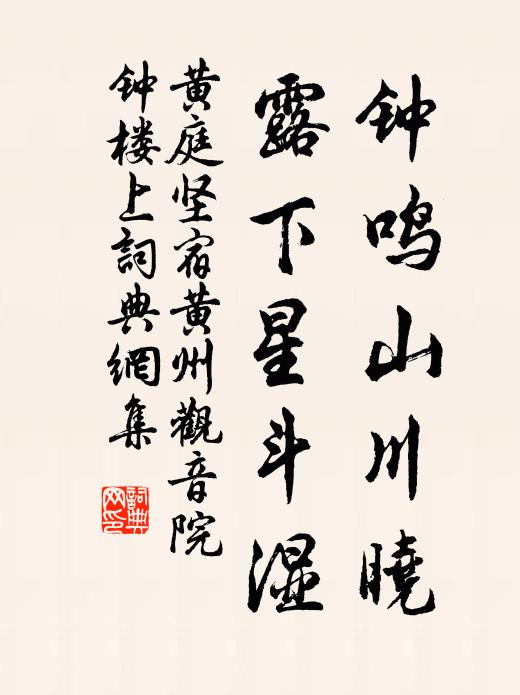 钟鸣山川曉
露下星斗湿
黄庭坚宿黄州觀音院
钟楼上詞典網集
詞典
网印